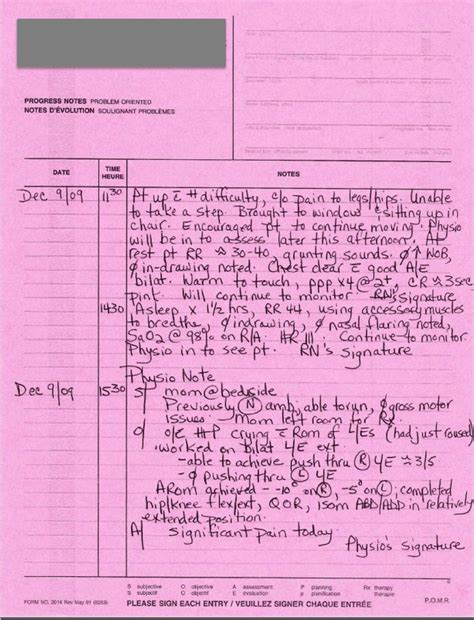 PROGRESS NOTES PROBLEM ORIENTED
NOTES D'ÉVOLUTION SOULIGNANT PROBLÈMES
DATE
TIME
HEURE
NOTES
Dec 9/09 1130 Pt up c̄ # difficulty, c/o pain to legs/hips. Unable
to take a step. Brought to window & sitting up in
chair. Encouraged pt to continue moving. Physio
will be in to assess later this afternoon. At
rest pt RR ≈ 30-40, grunting sounds. ∅ ↑ WOB,
∅ in-drawing noted. Chest clear c̄ good A/E
bilat. Warm to touch, ppp x4 @ 2+, CR ≈ 3sec
pink. Will continue to monitor. RN's signature
1430 Asleep x 1½ hrs, RR 44, using accessory muscles
to breathe, ∅ indrawing, ∅ nasal flaring noted,
SaO2 @ 98% on R/A. HR 111. Continue to monitor
Physio in to see pt. RN's Signature
Physio Note
Dec 9/09 1530 S/ mom@bedside
Previously Ⓝ amb, able to run, ∅ gross motor
issues. Mom left room for Rx
O/ o/e #P crying c̄ Rom of 4/Es (had just roused)
Worked on Bilat 4/E ext
-able to achieve push thru Ⓡ 4/E ≈ 3/5
-∅ pushing thru Ⓛ 4/E
ARom achieved - -10° on Ⓡ, -5° on Ⓛ; completed
hip/knee flex/ext, QOR, isom ABD/ADD in relatively
extended position.
A/ significant pain today
Physio's Signature
S subjective
subjectif
O objective
objectif
A assessment
évaluation
P planning
planification
Rx therapy
thérapie
FORM NO. 2614 Rev May 91 (9293) PLEASE SIGN EACH ENTRY / VEUILLEZ SIGNER CHAQUE ENTRÉE P.O.M.R.